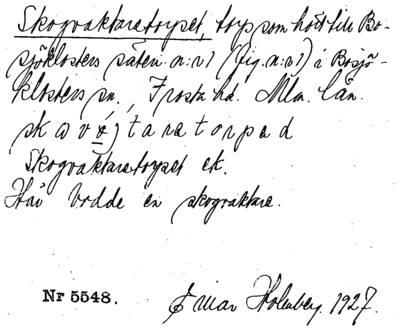 Skogvaktaretorpet, torp som hört till Bo-
sjöklosters säteri n:r 1 (fig. n:o 1) i Bosjö-
klosters sn. Frosta hd. Mlm. län.
Skogvaktaretorpet ek.
Här bodde en skogvaktare.
Nr 5548.
Einar Holmberg. 1927.